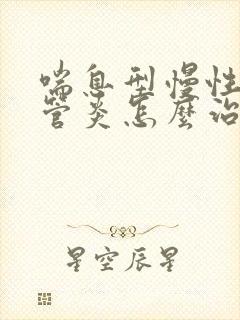 喘息型慢性
管炎怎麼治
星空辰星